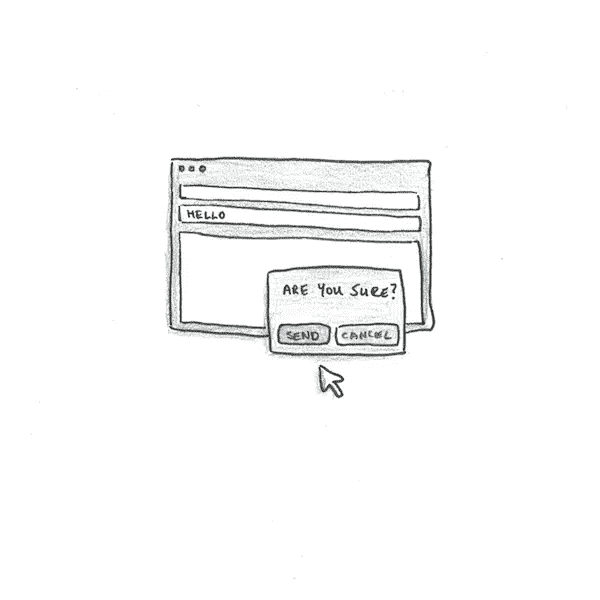 HELLO
ARE YOU SURE?
SEND CANCEL